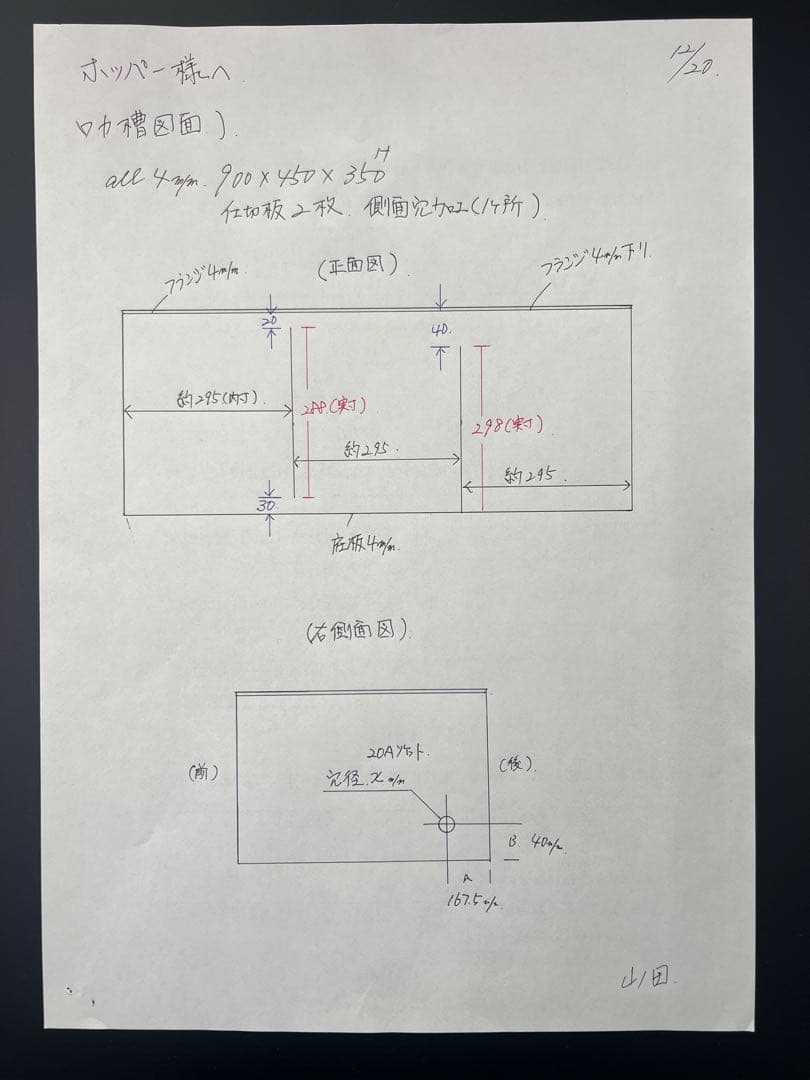 ホッパー様へ
12/20
ロカ槽図面)
all 4m/m. 900×450×350H
仕切板2枚. 側面穴加工(1ケ所)
(正面図)
フランジ4m/m
フランジ4m/m下リ
20
40.
約295(内寸)
288(実寸)
298(実寸)
約295.
約295.
30
底板4m/m.
(右側面図)
20Aソケット.
(前)
穴径.x m/m
(後).
B. 40m/m
A
167.5m/m
山田.